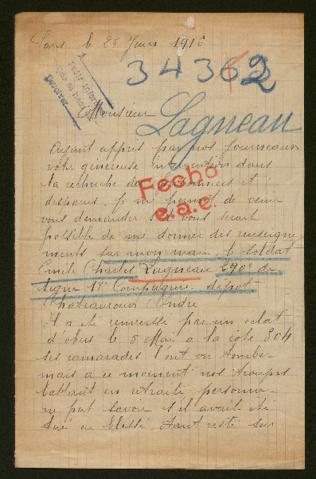 Paris le 28 Juin 1916
34362
Monsieur
Lagneau
Ayant appris par nos journaux
votre généreuse intervention dans
la recherche des prisonniers et
disparus. Je me permet de venir
vous demander s'il vous serait
possible de me donner des renseigne
ments sur mon mari le soldat
Emile Charles Lagneau 290e de
ligne 18e Compagnie dépot
Chateauroux Indre
Fecho
e.a.e.
Il a été renversé par un éclat
d'obus le 5 Mai a la côte 304
ses camarades l'ont vu tomber
mais a ce moment nos troupes
battant en retraite personne
ne put savoir s'il avait été
tué ou blessé étant resté sur